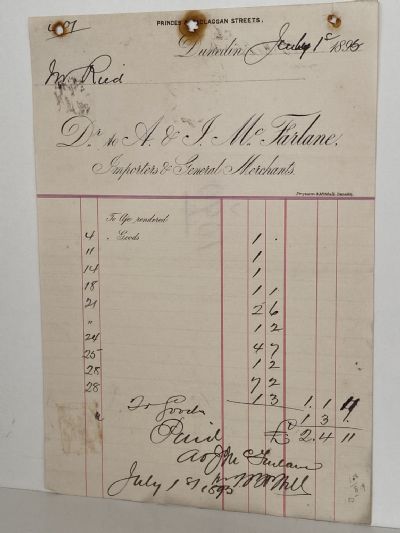 PRINCES & MACLAGGAN STREETS,
Dunedin July 1st 1895
Mr Reid
Dr. to A. & J. Mc Farlane,
Importers & General Merchants.
Fergusson & Mitchell, Dunedin.
To a/c rendered
4 " Goods 1 .
11 1
14 1
18 1 1
21 2 6
" 1 2
24 4 7
25 1 2
28 7 2
28 1 3 1. 1 11
To Goods 1 3 1.
Paid £ 2. 4 11
A & J McFarlane
July 1st 1895